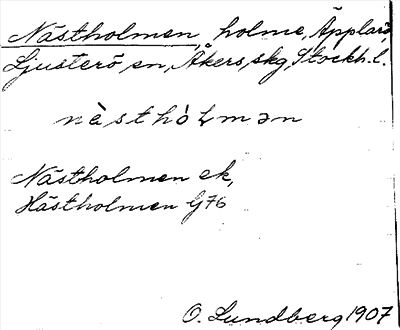 Nästholmen, holme, Äpplarö
Ljusterö sn, Åkers skg, Stockh. l.
nàsthòɫmən
Nästholmen ek,
Hästholmen G76
O. Lundberg 1907